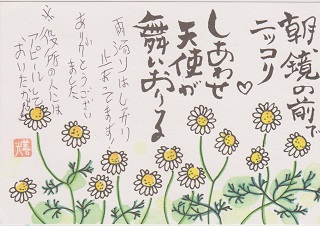 朝、鏡の前で
ニッコリ♡
しあわせ
天使が
舞いおりる
雨漏りはしっかり
止まってます。
ありがとうござい
ました
※役所の人には
アピールして
おいたから